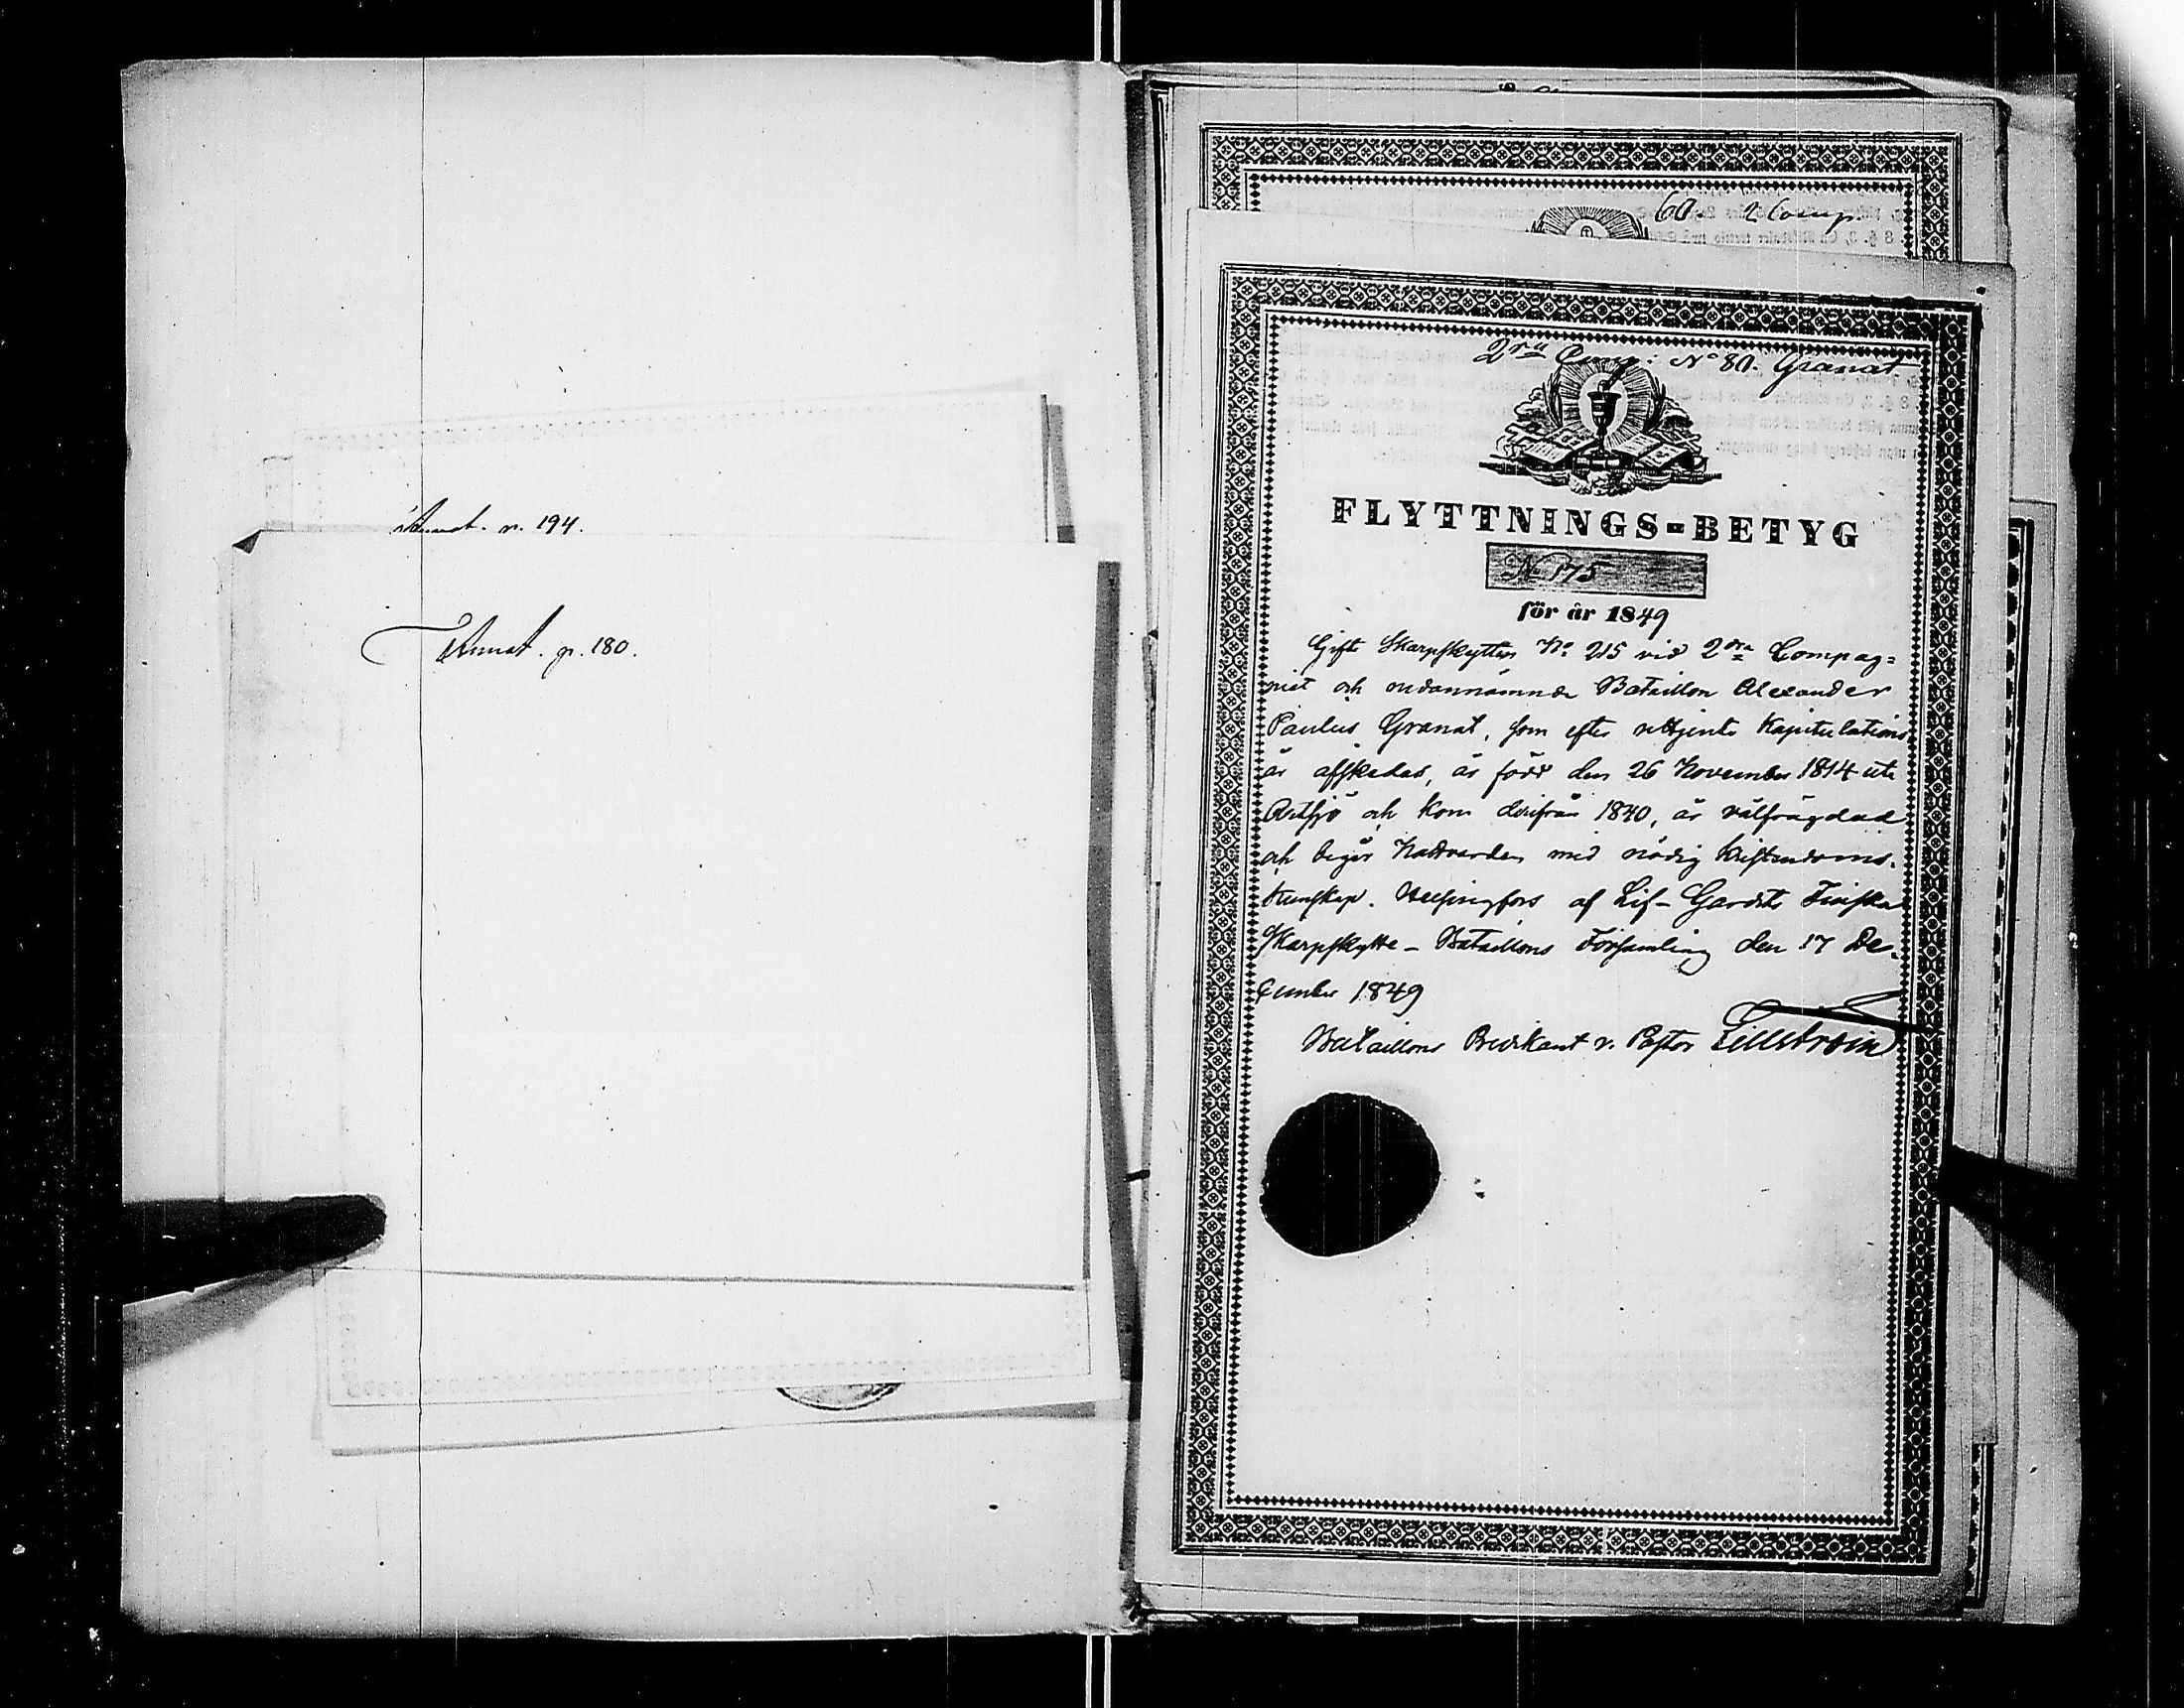 Annot. p. 194.
Annot. p. 180.
60. 2 Comp.
2ra Comp: No 80. Granat.
FLYTTNINGS-BETYG
No 175
för år 1849
Gifte Skarpskytten No 215 vid 2dra Compag=
niet och nedannämnde Bataillon Alexander
Paulus Granat, som efter uttjent Kapitulations
år afskedad, är född den 26 November 1814 uti
och kom derifrån 1840, är välfrägdad
och begår Nattvarden med nödig Kristendoms-
kunskap. Helsingfors af Lif-Gardets Finska
Skarpskytte-Bataillons Församling den 17 De-
cember 1849
Bataillons Predikant v. Pastor Lillström